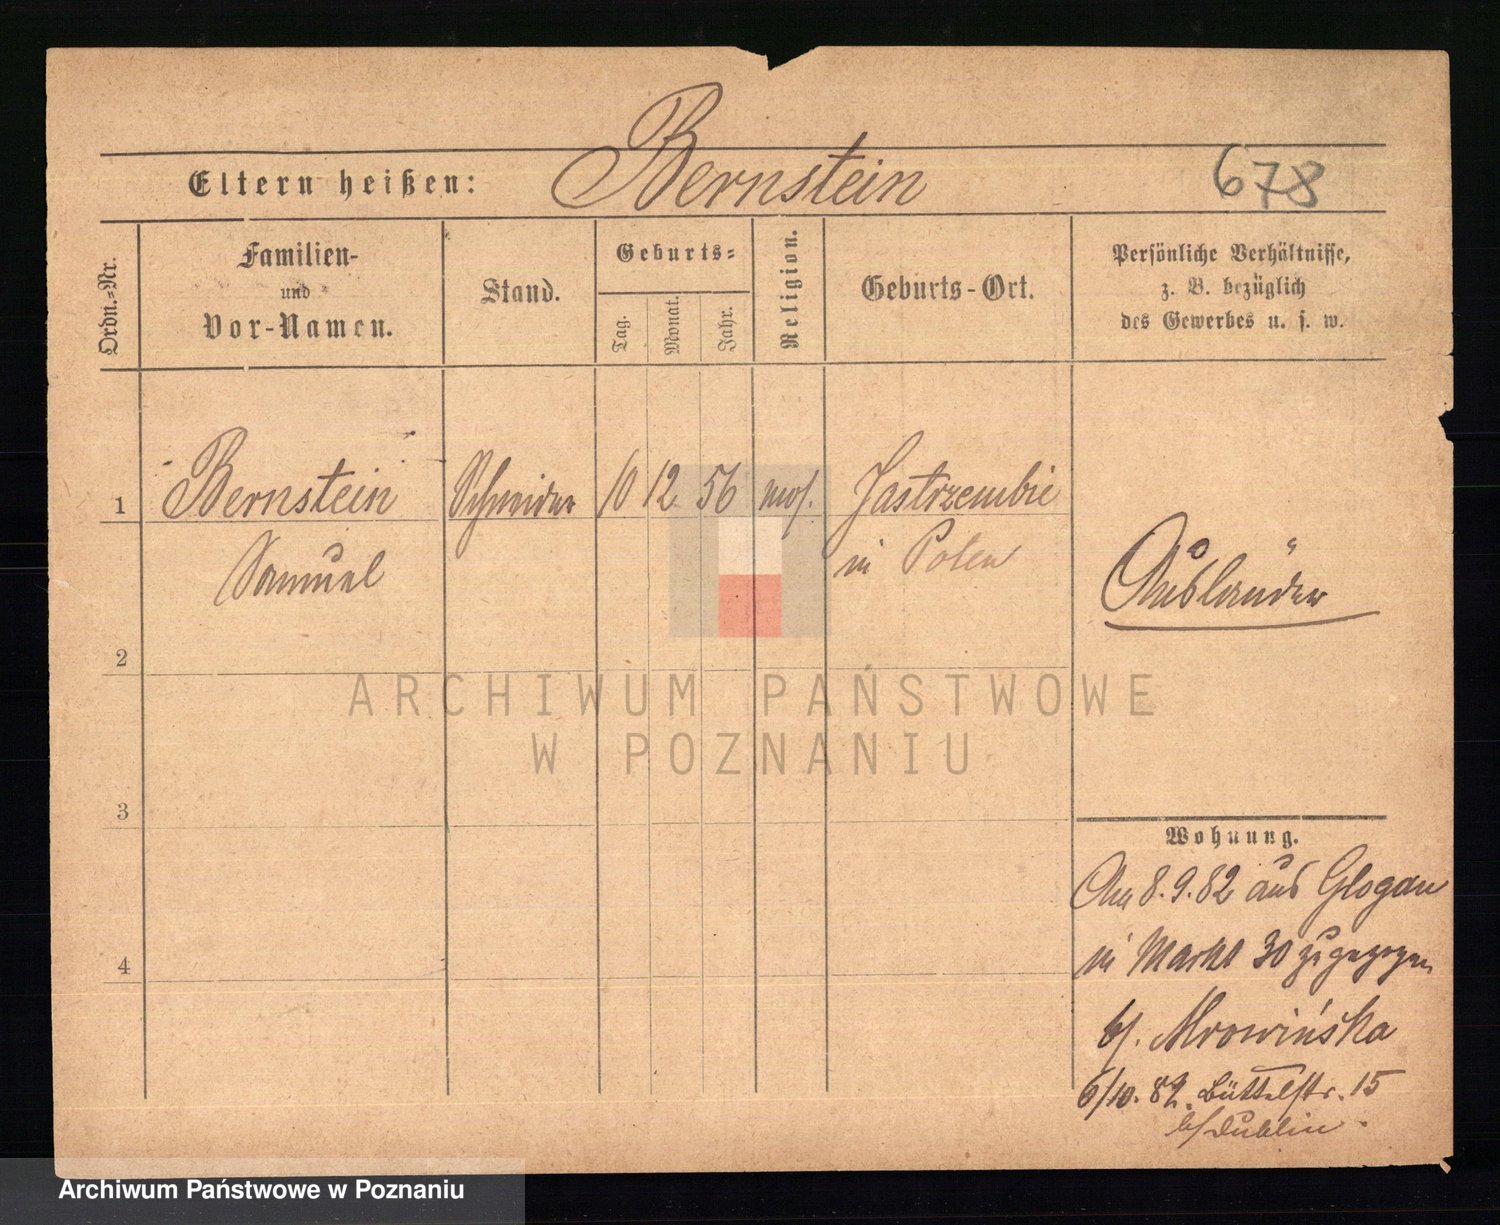 Eltern heißen: Bernstein 678
Ordn.-Nr.
Familien-
und
Vor-Namen.
Stand.
Geburts-
Tag.
Monat.
Jahr.
Religion.
Geburts-Ort.
Persönliche Verhältnisse,
z. B. bezüglich
des Gewerbes u. s. w.
1 Bernstein Schneider 10 12 56 mos. Jastrzembie
Samuel in Polen
Ausländer
2
3
4
ARCHIWUM PAŃSTWOWE
W POZNANIU
Wohnung.
Am 8.9.82 aus Glogau
in Markt 30 zugezogen
b/. Mrowińska
6/10. 82. Büttelstr. 15
b/ Dublin.
Archiwum Państwowe w Poznaniu